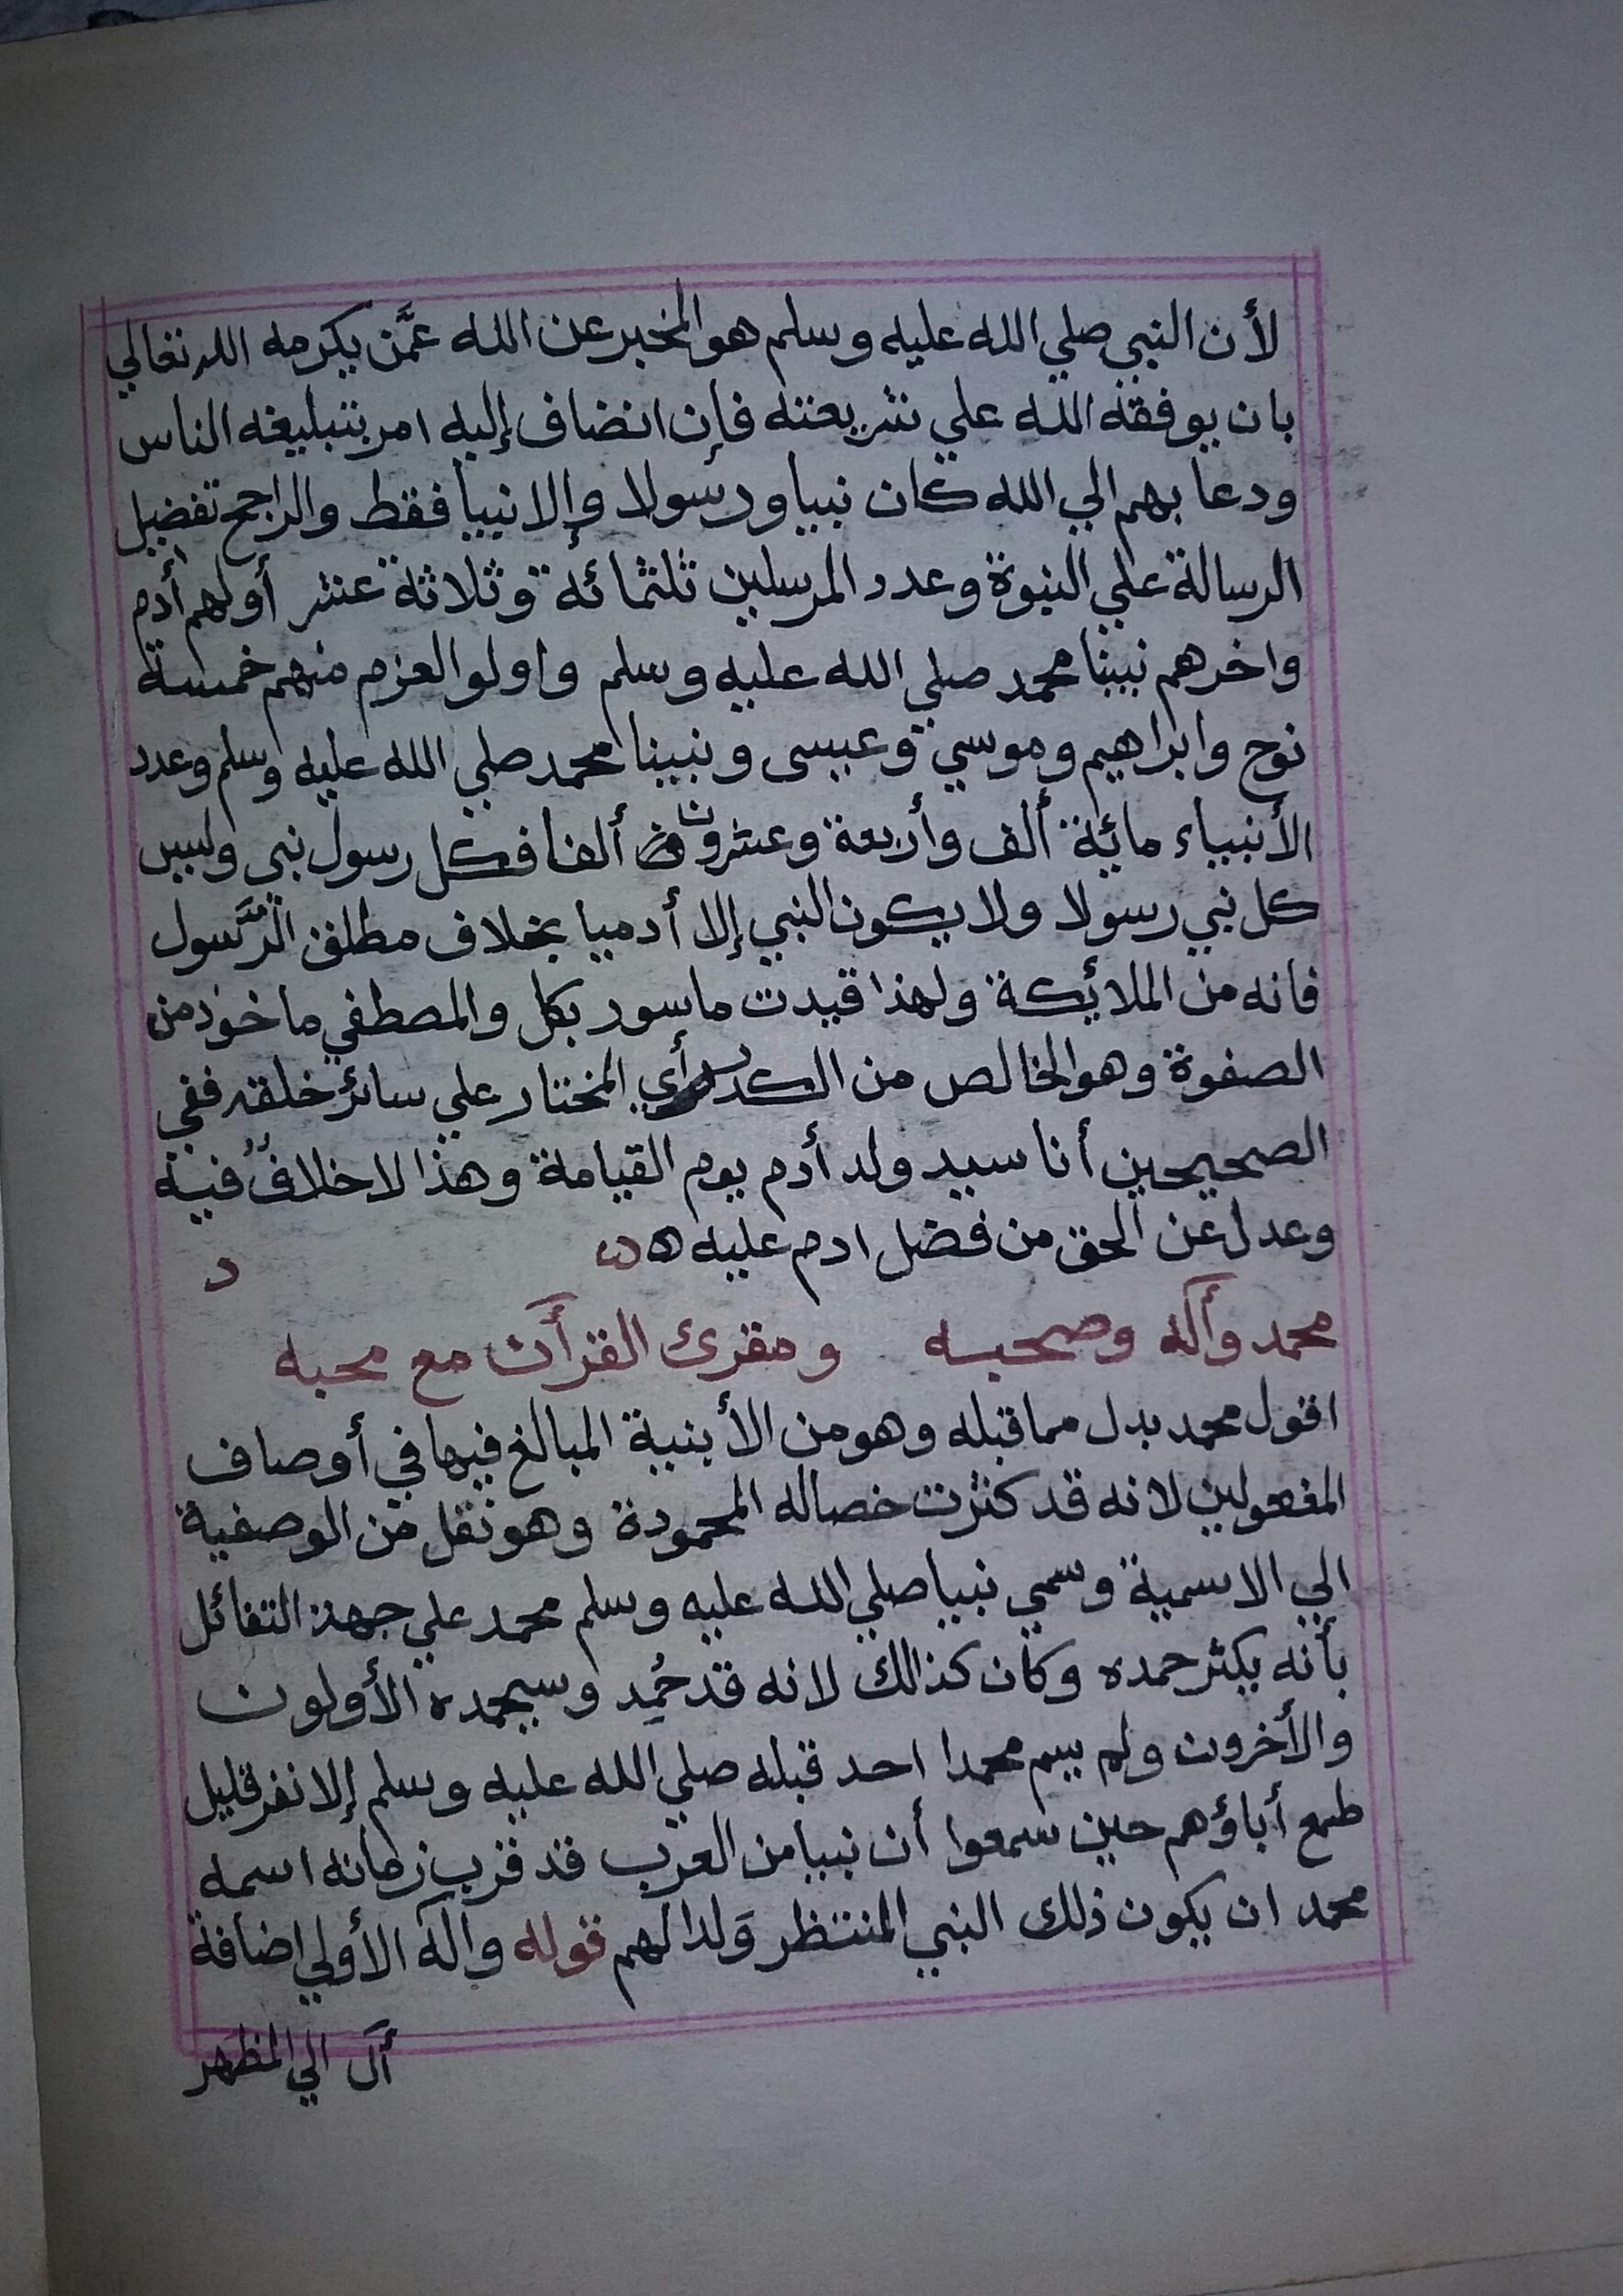 لأن النبي صلي الله عليه وسلم هو المخبر عن الله عمَّن يكرمه الله تعالي
بان يوفقه الله علي شريعته فإن انضاف إليه امر بتبليغه الناس
ودعا بهم الي الله كان نبيا ورسولا وإلا نبيا فقط والراجح تفضيل
الرسالة علي النبوة وعدد المرسلين ثلثمائة وثلاثة عشر أولهم أدم
واخرهم نبينا محمد صلي الله عليه وسلم واولو العزم منهم خمسة
نوح وابراهيم وموسي وعيسى ونبينا محمد صلي الله عليه وسلم وعدد
الأنبياء مائة ألف وأربعة وعشرون ألفا فكل رسول نبي وليس
كل نبي رسولا ولا يكون النبي إلا أدميا بخلاف مطلق الرَّسول
فانه من الملائكة ولهذا قيدت ما سور بكل والمصطفي ماخوذ من
الصفوة وهو الخالص من الكدر أي المختار علي سائر خلقه ففي
الصحيحين أنا سيد ولد أدم يوم القيامة وهذا لا خلاف فيه
وعدل عن الحق من فضل ادم عليه ه
د
محمد وأله وصحبه ومقرئ القرأن مع محبه
اقول محمد بدل مما قبله وهو من الأبنية المبالغ فيها في أوصاف
المفعولين لانه قد كثرت خصاله المحمودة وهو نقل من الوصفية
الي الاسمية وسمي نبيا صلي الله عليه وسلم محمد علي جهة التفائل
بأنه يكثر حمده وكان كذالك لانه قد حُمِد وسيحمده الأولون
والأخرون ولم يسم محمدا احد قبله صلي الله عليه وسلم إلا نفر قليل
طمع أباؤهم حين سمعوا أن نبيا من العرب قد قرب زمانه اسمه
محمد ان يكون ذلك النبي المنتظر وَلدا لهم قوله وآله الأولي اضافة
أل الي المظهر